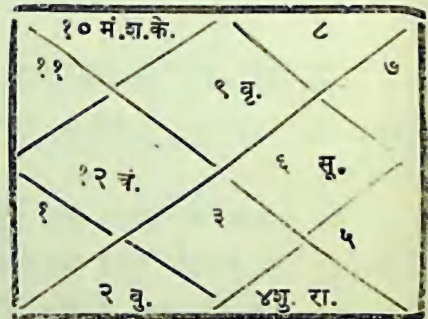 १० मं.श.के. ८
११ ७
९ वृ.
१२ चं. ६ सू.
१ ३ ५
२ बु. ४शु. रा.